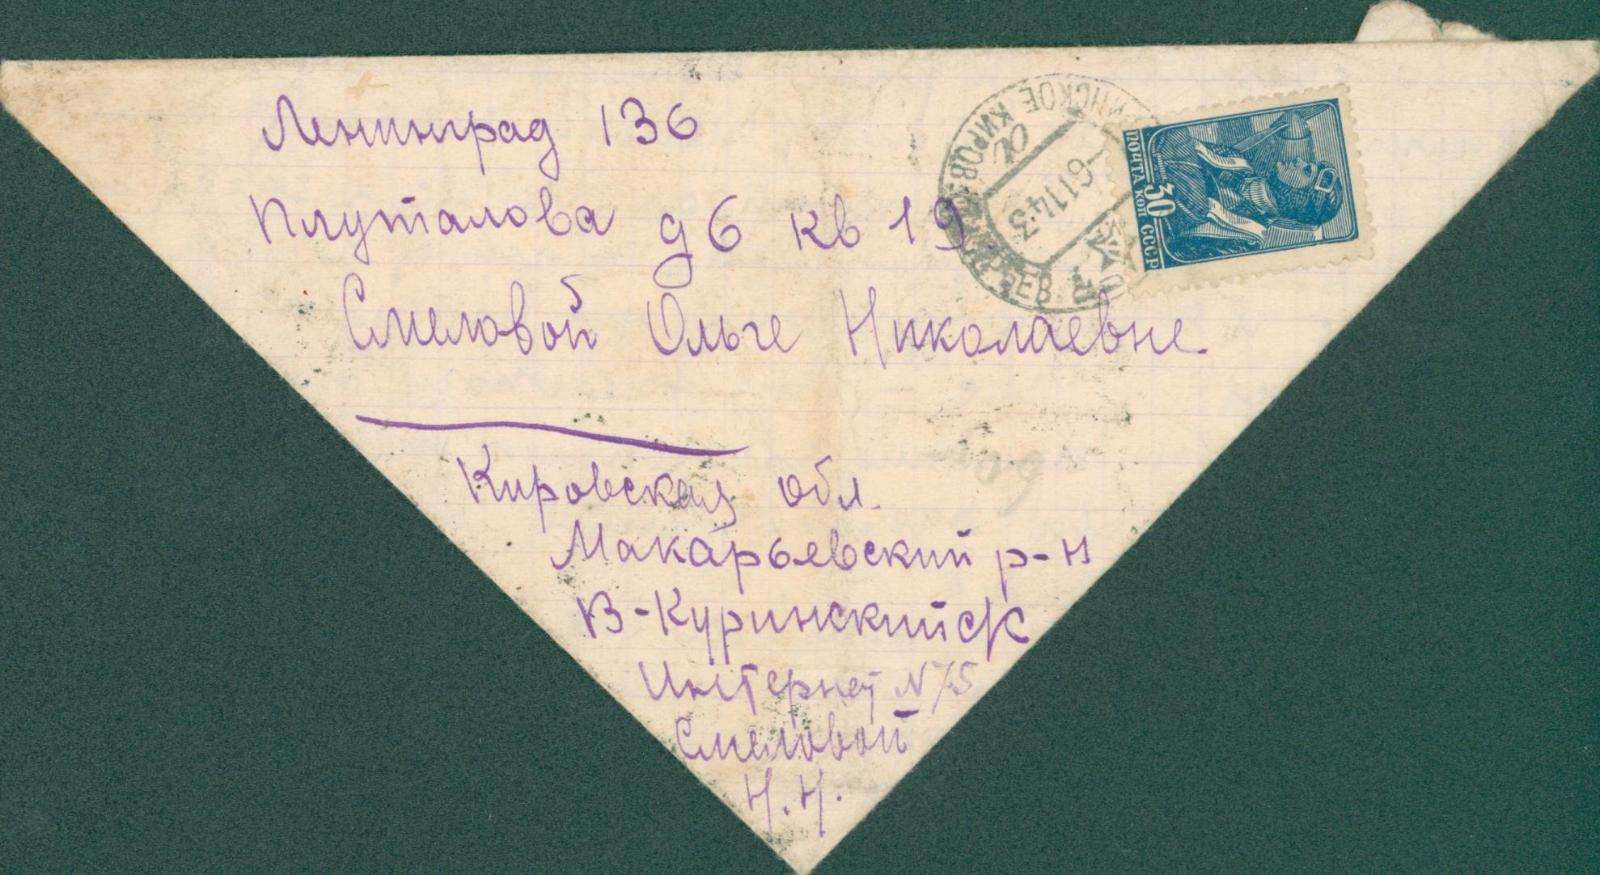 Ленинград 136
Плуталова д 6 кв 19
Смеловой Ольге Николаевне.
Кировская обл.
Макарьевский р-н
В-Куринский с/с
Интернат N 75
Смеловой
Н. Н.
6 1 1 43
ПОЧТА 30 КОП СССР